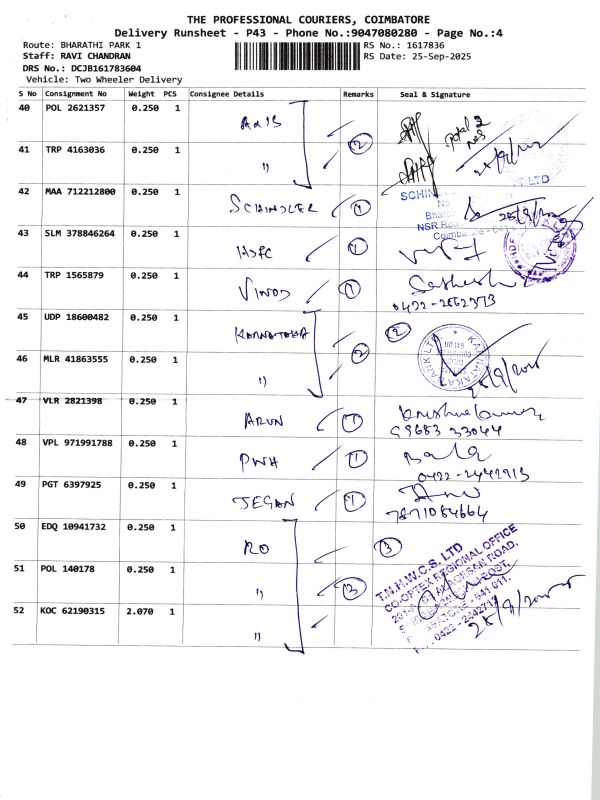 THE PROFESSIONAL COURIERS, COIMBATORE
Delivery Runsheet - P43 - Phone No.:9047080280 - Page No.:4
Route: BHARATHI PARK 1 RS No.: 1617836
Staff: RAVI CHANDRAN RS Date: 25-Sep-2025
DRS No.: DCJB161783604
Vehicle: Two Wheeler Delivery
S No Consignment No Weight PCS Consignee Details Remarks Seal & Signature
40 POL 2621357 0.250 1 Axis
Total 2
41 TRP 4163036 0.250 1 " 2
42 MAA 712212800 0.250 1 SCHINDLER 1
43 SLM 378846264 0.250 1 HDFC 1
44 TRP 1565879 0.250 1 VINOD 1
45 UDP 18600482 0.250 1 KARNATAKA 2
46 MLR 41863555 0.250 1 " 2
KARNATAKA BANK LTD
47 VLR 2821398 0.250 1 ARUN 1
99683 33044
48 VPL 971991788 0.250 1 PWH 1 Bala
0422-2442913
49 PGT 6397925 0.250 1 JEGAN 1
7871084664
50 EDQ 10941732 0.250 1 RO 3
51 POL 140178 0.250 1 " 3
52 KOC 62190315 2.070 1 "
T.N.H.W.C.S. LTD
CO-OPTEX REGIONAL OFFICE